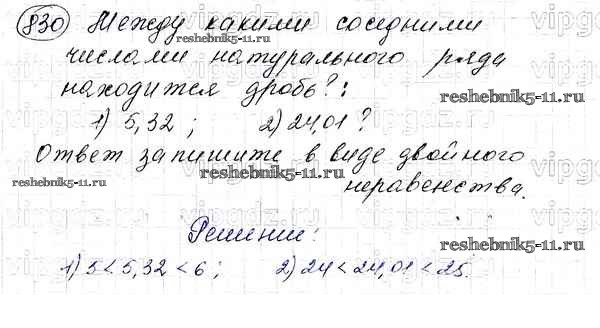 830 Между какими соседними
числами натурального ряда
находится дробь?:
1) 5,32 ; 2) 24,01 ?
Ответ запишите в виде двойного
неравенства.
Решение:
1) 5 < 5,32 < 6 ; 2) 24 < 24,01 < 25.
reshebnik5-11.ru
reshebnik5-11.ru
reshebnik5-11.ru
reshebnik5-11.ru
reshebnik5-11.ru
vipgdz.ru